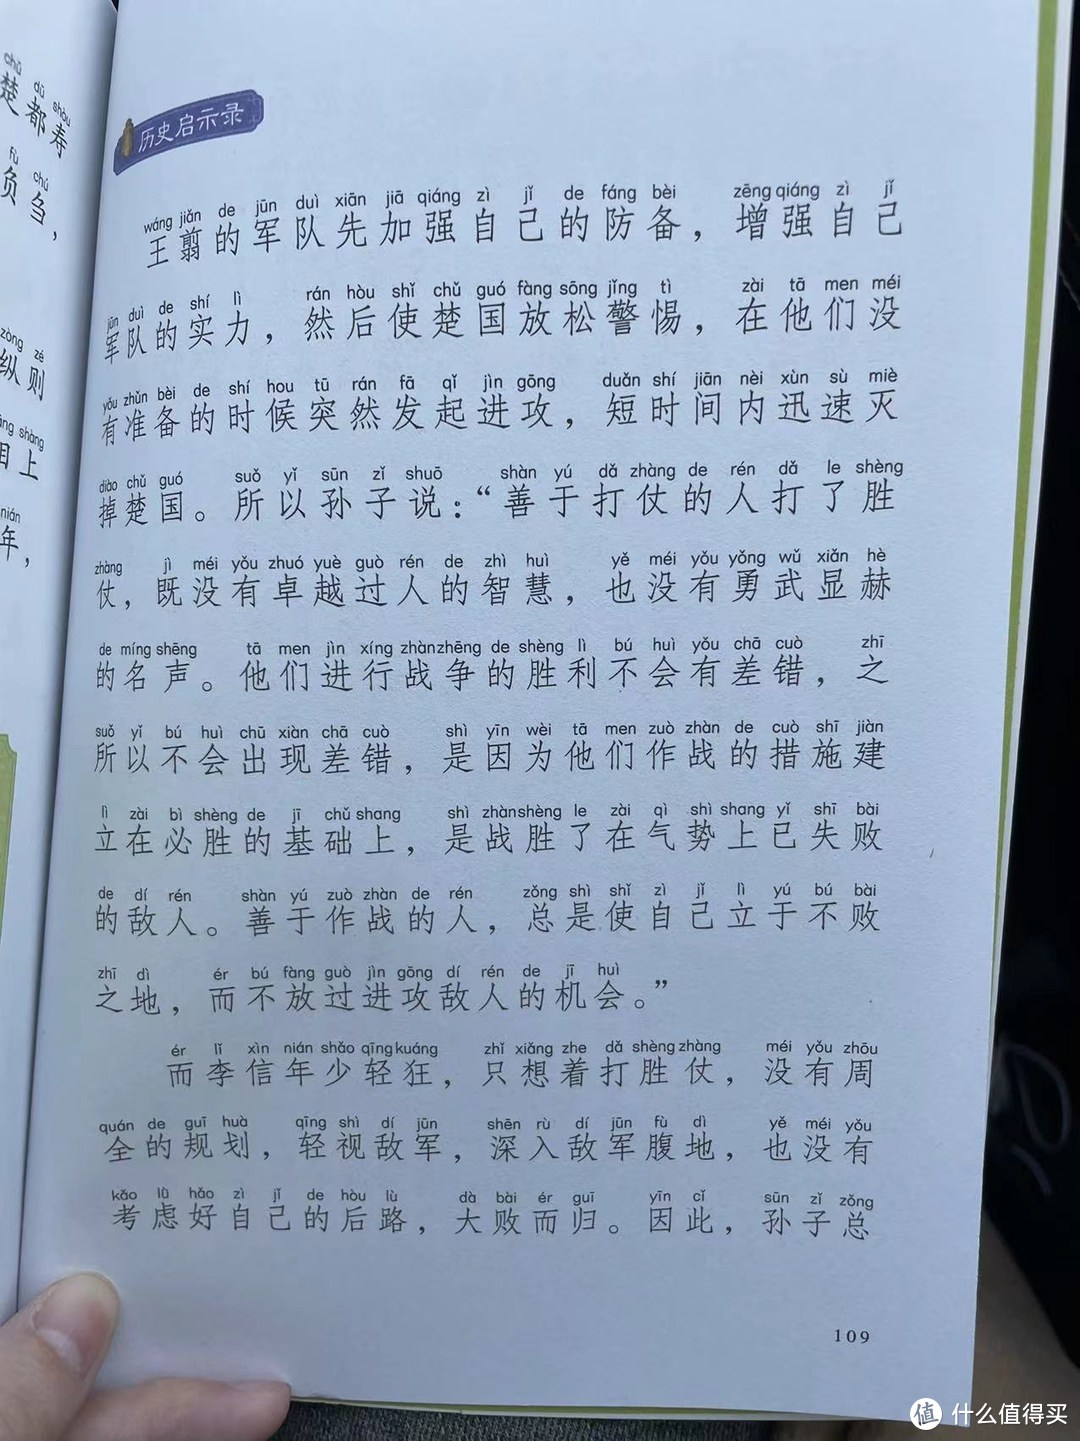 chǔ dū shòu
楚都寿
fù chú
负刍，
zòng zé
纵则
shàng
相上
nián
年，
历史启示录
wáng jiǎn de jūn duì xiān jiā qiáng zì jǐ de fáng bèi zēng qiáng zì jǐ
王翦的军队先加强自己的防备，增强自己
jūn duì de shí lì rán hòu shǐ chǔ guó fàng sōng jǐng tì zài tā men méi
军队的实力，然后使楚国放松警惕，在他们没
yǒu zhǔn bèi de shí hou tū rán fā qǐ jìn gōng duǎn shí jiān nèi xùn sù miè
有准备的时候突然发起进攻，短时间内迅速灭
diào chǔ guó suǒ yǐ sūn zǐ shuō shàn yú dǎ zhàng de rén dǎ le shèng
掉楚国。所以孙子说：“善于打仗的人打了胜
zhàng jì méi yǒu zhuó yuè guò rén de zhì huì yě méi yǒu yǒng wǔ xiǎn hè
仗，既没有卓越过人的智慧，也没有勇武显赫
de míng shēng tā men jìn xíng zhàn zhēng de shèng lì bú huì yǒu chā cuò zhī
的名声。他们进行战争的胜利不会有差错，之
suǒ yǐ bú huì chū xiàn chā cuò shì yīn wèi tā men zuò zhàn de cuò shī jiàn
所以不会出现差错，是因为他们作战的措施建
lì zài bì shèng de jī chǔ shang shì zhàn shèng le zài qì shì shang yǐ shī bài
立在必胜的基础上，是战胜了在气势上已失败
de dí rén shàn yú zuò zhàn de rén zǒng shì shǐ zì jǐ lì yú bú bài
的敌人。善于作战的人，总是使自己立于不败
zhī dì ér bú fàng guò jìn gōng dí rén de jī huì
之地，而不放过进攻敌人的机会。”
ér lǐ xìn nián shào qīng kuáng zhǐ xiǎng zhe dǎ shèng zhàng méi yǒu zhōu
而李信年少轻狂，只想着打胜仗，没有周
quán de guī huà qīng shì dí jūn shēn rù dí jūn fù dì yě méi yǒu
全的规划，轻视敌军，深入敌军腹地，也没有
kǎo lǜ hǎo zì jǐ de hòu lù dà bài ér guī yīn cǐ sūn zǐ zǒng
考虑好自己的后路，大败而归。因此，孙子总
109
值 什么值得买